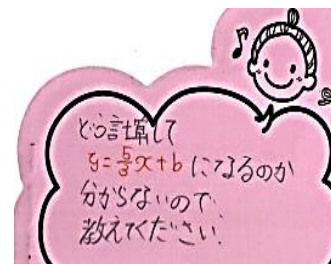 どう計算して
y=5/3x+b になるのか
分からないので、
教えてください。